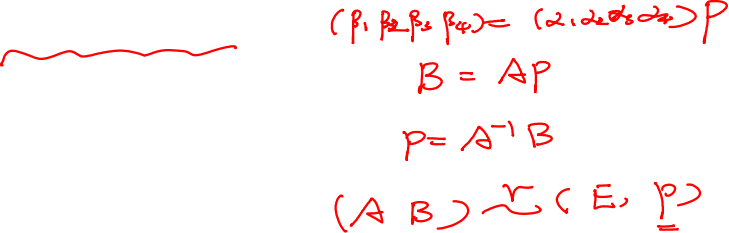 (β₁ β₂ β₃ β₄) = (α₁ α₂ α₃ α₄) P
B = AP
P = A⁻¹ B
(A B) ~r (E, P)